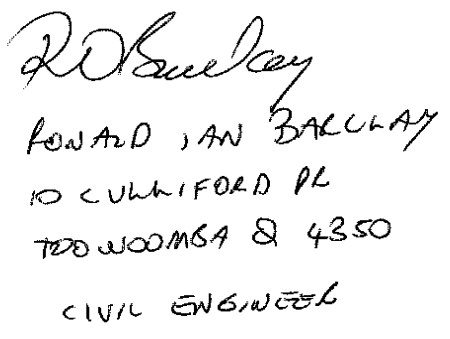 RD Barclay
RONALD IAN BARCLAY
10 CULLIFORD PL
TOOWOOMBA Q 4350
CIVIL ENGINEER